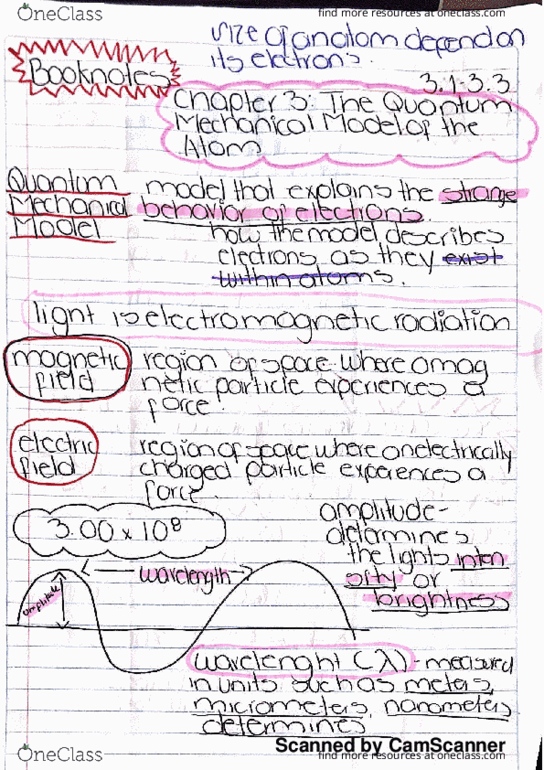 OneClass
find more resources at oneclass.com
size of an atom depend on
its electrons.
Booknotes
3.1-3.3
Chapter 3: The Quantum
Mechanical Model of the
Atom
Quantum
Mechanical
Model
model that explains the strange
behavior of electrons.
how the model describes
electrons as they exist
within atoms.
light is electromagnetic radiation
magnetic
field
region of space where a mag
netic particle experiences a
force.
electric
field
region of space where an electrically
charged particle experiences a
force.
3.00 x 10⁸
amplitude-
determines
the lights inten
sity or
brightness
wavelength
amplitude
wavelenght (λ)-measured
in units such as meters,
micrometers, nanometers
determines
Scanned by CamScanner
OneClass
find more resources at oneclass.com